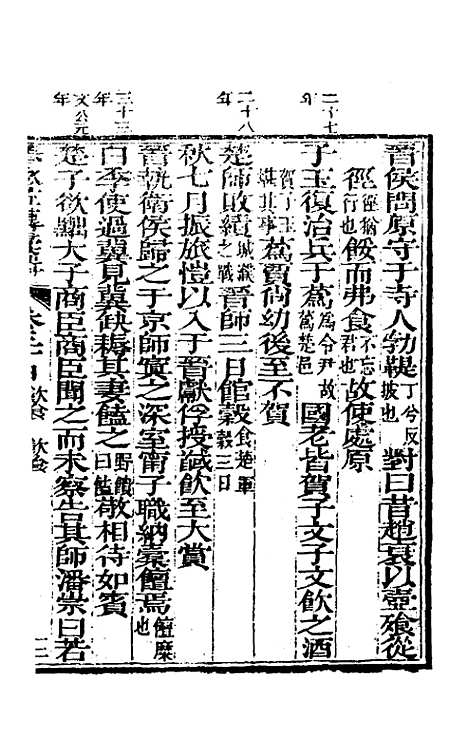 晉侯問原守于寺人勃鞮丁兮反披也對曰昔趙衰以壺飧從
徑徑猶行也餒而弗食不忘君也故使處原
二十七年
子玉復治兵于蒍為令尹故蒍楚邑國老皆賀子文子文飲之酒
賀子玉堪其事蒍賈尚幼後至不賀
二十八年
楚師敗績城濮之戰晉師三日館穀食楚軍穀三日
秋七月振旅愷以入于晉獻俘授馘飲至大賞
晉執衛侯歸之于京師寘之深室甯子職納橐饘焉饘糜也
三十三年
臼季使過冀見冀缺耨其妻饁之野饋曰饁敬相待如賓
文公元年
楚子欲黜大子商臣商臣聞之而未察告其師潘崇曰若
飲食
三